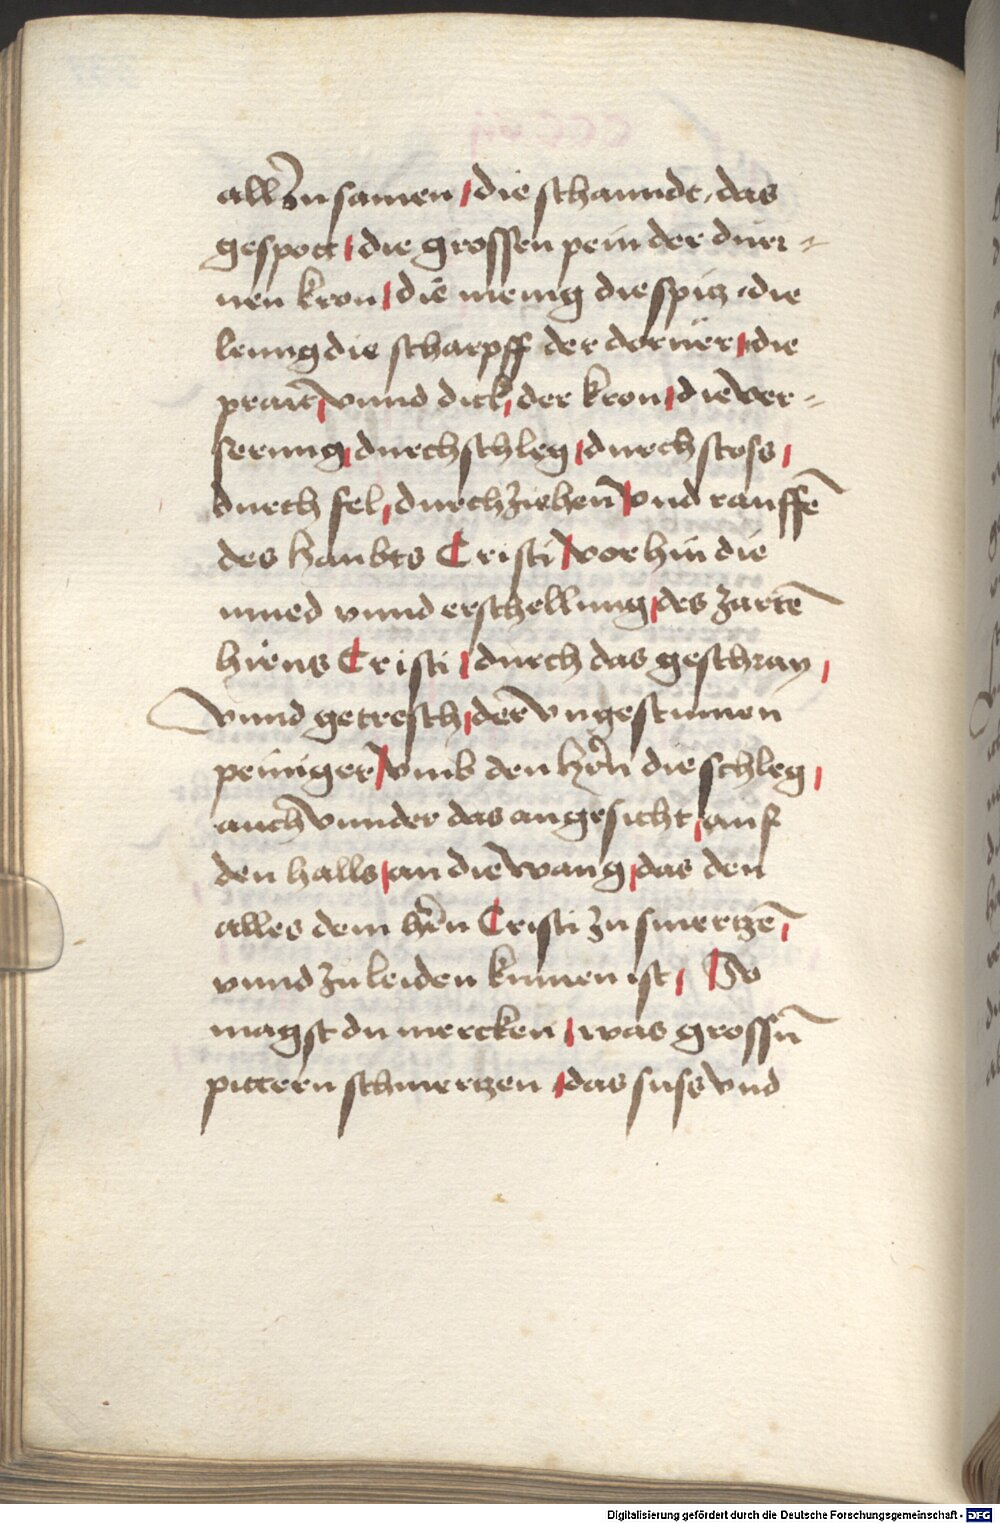 all zu samen / die schanndt, das
gespott / die grossen pein der dürr =
nen kron / die menig die spitz / die
leung die scharpff der dorner / die
prait / vnnd dick / der kron / die ver =
serung / durchschleg / durchstoss /
durch fel / durchziehen / vnd rauffē
des haubts Cristi / vor hin die
mued vnnd erschellung / des zartē
hirns Cristi / durch das geschray /
vnnd getresch / der vngestumen
peiniger / vmb den hr̄n die schleg /
auch vnnder das angesicht / auf
den halls / an die wang / das den
alles dem hr̄n Cristi zu smertzē /
vnnd zu leiden kumen ist / So
magst du mercken / was grossn̄
pittern schmertzen / das suss vnd
Digitalisierung gefördert durch die Deutsche Forschungsgemeinschaft - DFG